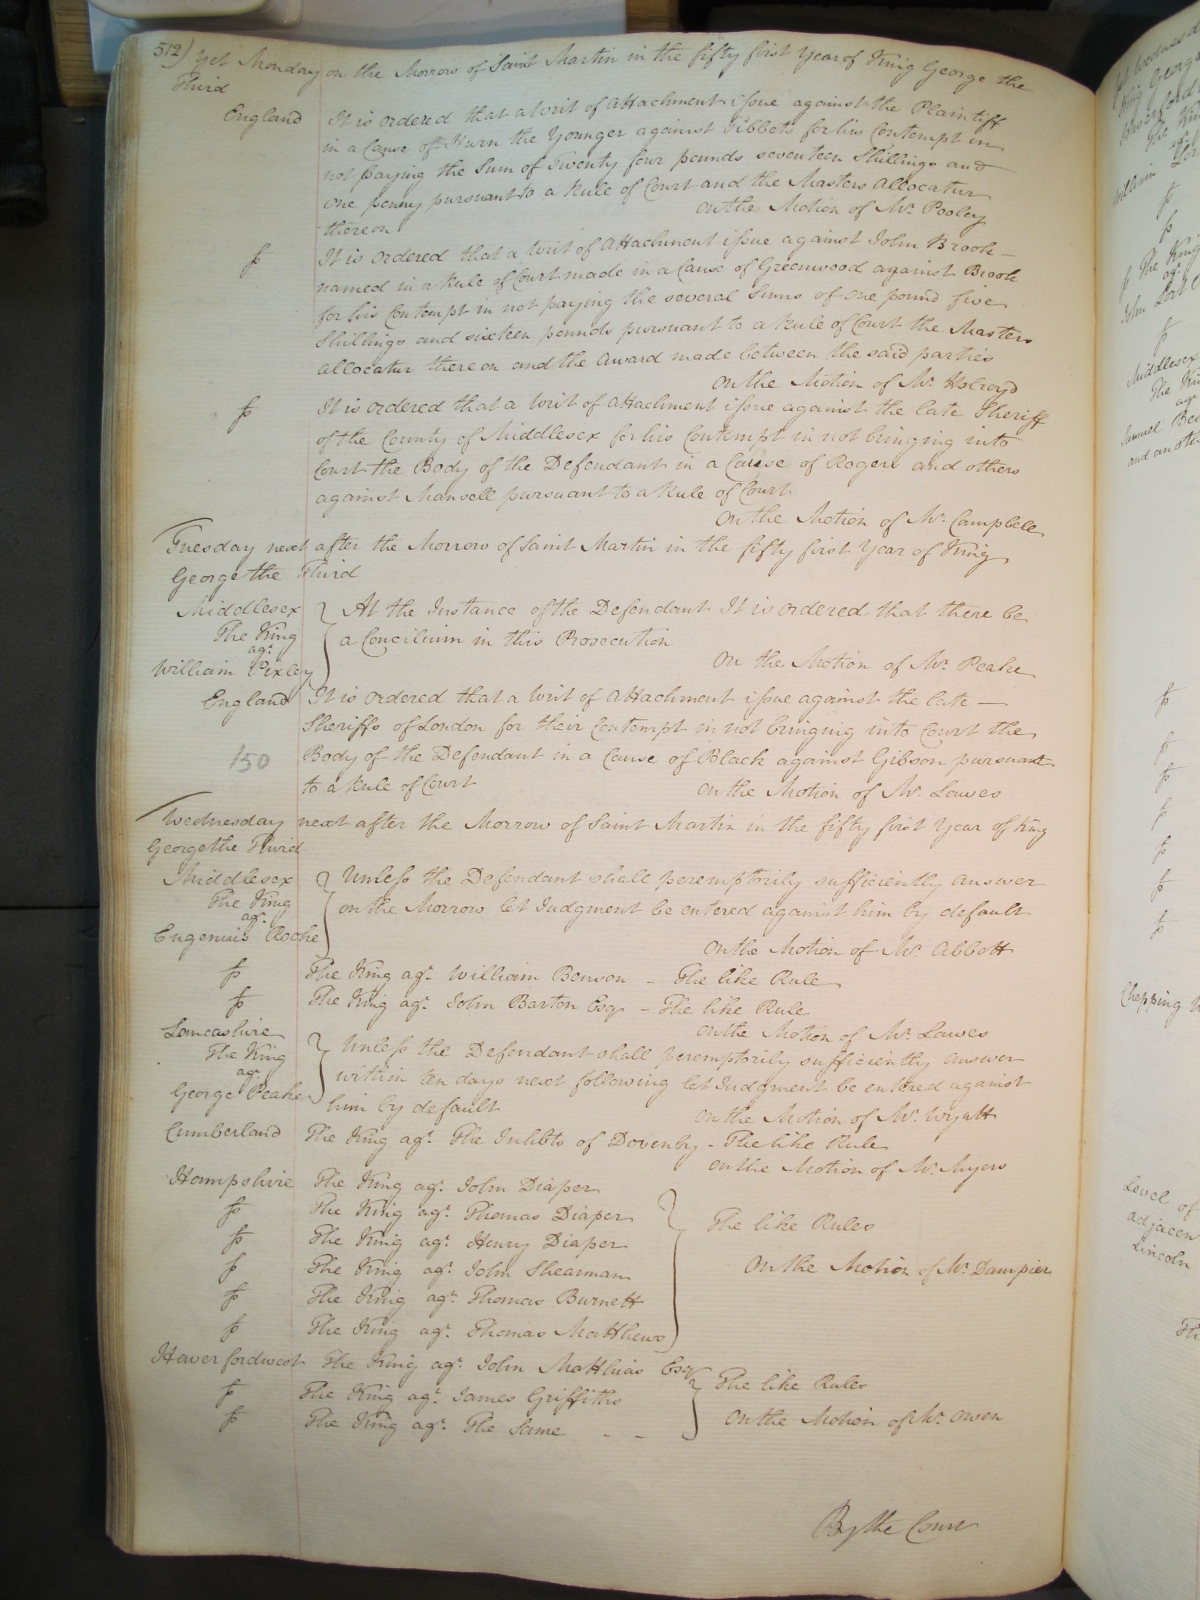 512) Yet Monday on the Morrow of Saint Martin in the fifty first Year of King George the
Third
England It is ordered that a Writ of Attachment issue against the Plaintiff
in a Cause of Hurn the Younger against Tibbets for his Contempt in
not paying the Sum of Twenty four pounds seventeen Shillings and
one penny pursuant to a Rule of Court and the Masters Allocatur
thereon On the Motion of Mr. Pooley
It is ordered that a Writ of Attachment issue against John Brook
named in a Rule of Court made in a Cause of Greenwood against Brook
for his Contempt in not paying the several Sums of one pound five
Shillings and sixteen pounds pursuant to a Rule of Court the Masters
allocatur thereon and the Award made between the said parties
On the Motion of Mr. Holroyd
It is ordered that a Writ of Attachment issue against the late Sheriff
of the County of Middlesex for his Contempt in not bringing into
Court the Body of the Defendant in a Cause of Rogers and others
against Mansell pursuant to a Rule of Court
On the Motion of Mr. Campbell
Tuesday next after the Morrow of Saint Martin in the fifty first Year of King
George the Third
Middlesex At the Instance of the Defendant It is ordered that there be
The King a Concilium in this Prosecution
agt.
William Pixley On the Motion of Mr. Peake
England It is ordered that a Writ of Attachment issue against the late
Sheriffs of London for their Contempt in not bringing into Court the
150 Body of the Defendant in a Cause of Black against Gibson pursuant
to a Rule of Court On the Motion of Mr. Lawes
Wednesday next after the Morrow of Saint Martin in the fifty first Year of King
George the Third
Middlesex Unless the Defendant shall peremptorily sufficiently answer
The King on the Morrow let Judgment be entered against him by default
agt.
Eugenius Roche On the Motion of Mr. Abbott
The King agt. William Benson - The like Rule
The King agt. John Barton Esqr - The like Rule
On the Motion of Mr. Lawes
Lancashire Unless the Defendant shall peremptorily sufficiently answer
The King within ten days next following let Judgment be entered against
agt.
George Peake him by default On the Motion of Mr. Wyatt
Cumberland The King agt. The Inhbts of Dovenby - The like Rule
On the Motion of Mr. Myers
Hampshire The King agt. John Diaper
The King agt. Thomas Diaper The like Rules
The King agt. Henry Diaper
The King agt. John Shearman On the Motion of Mr. Dampier
The King agt. Thomas Burnett
The King agt. Thomas Matthews
Haverfordwest The King agt. John Matthias Esqr
The King agt. James Griffiths The like Rules
The King agt. The Same - - On the Motion of Mr. Owen
By the Court